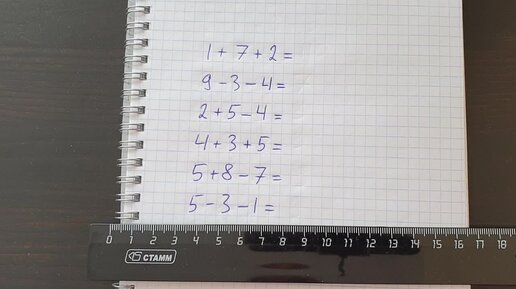 1 + 7 + 2 =
9 - 3 - 4 =
2 + 5 - 4 =
4 + 3 + 5 =
5 + 8 - 7 =
5 - 3 - 1 =
0 1 2 3 4 5 6 7 8 9 10 11 12 13 14 15 16 17 18
СТАММ